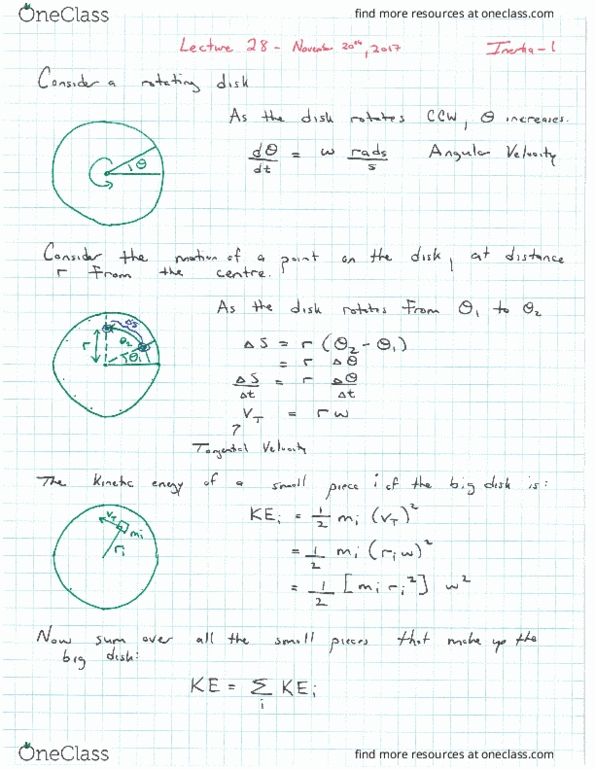 OneClass find more resources at oneclass.com
Lecture 28 - November 20th, 2017 Inertia-1
Consider a rotating disk
As the disk rotates CCW, θ increases.
dθ/dt = ω rads/s Angular Velocity
θ
Consider the motion of a point on the disk, at distance
r from the centre.
As the disk rotates from θ₁ to θ₂
ΔS
r θ₂ θ₁
ΔS = r (θ₂ - θ₁)
= r Δθ
ΔS/Δt = r Δθ/Δt
V_T = r ω
Tangential Velocity
The Kinetic energy of a small piece i of the big disk is:
V_T m_i
r_i
KE_i = 1/2 m_i (V_T)²
= 1/2 m_i (r_i ω)²
= 1/2 [m_i r_i²] ω²
Now sum over all the small pieces that make up the
big disk:
KE = Σ_i KE_i
OneClass find more resources at oneclass.com